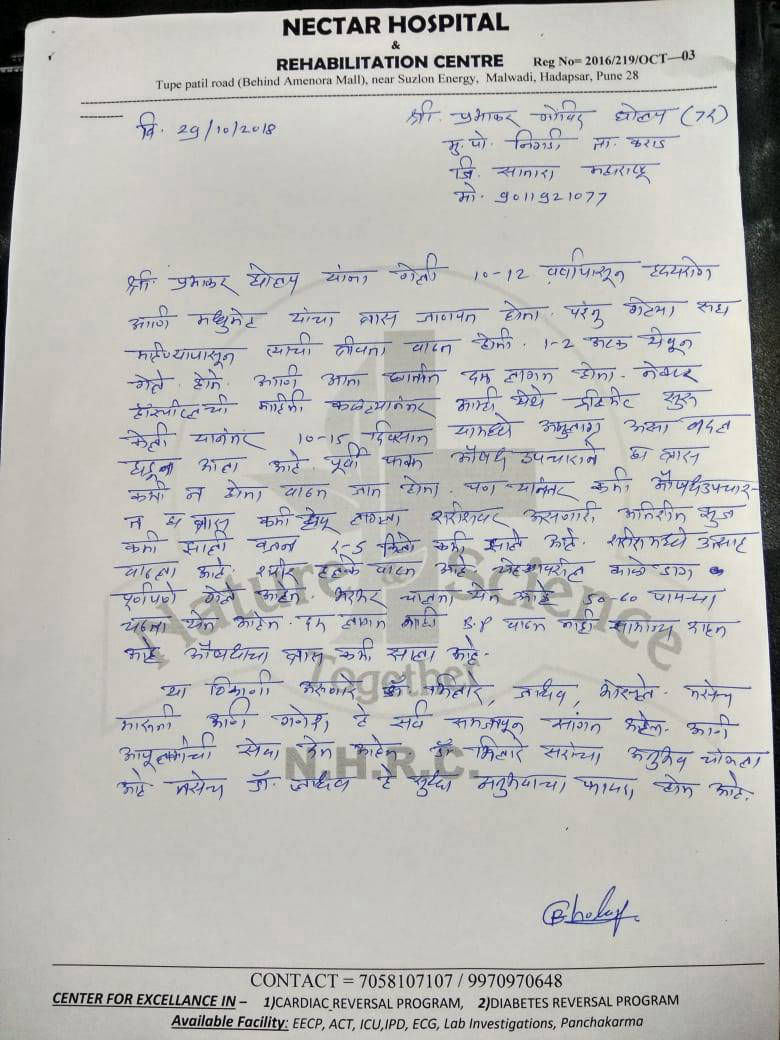 NECTAR HOSPITAL
&
REHABILITATION CENTRE Reg No= 2016/219/OCT—03
Tupe patil road (Behind Amenora Mall), near Suzlon Energy, Malwadi, Hadapsar, Pune 28
दि. 29/10/2018
श्री. प्रभाकर गोविंद घोलप (72)
मु. पो. निगडी ता. कराड
जि. सातारा महाराष्ट्र
मो. 9011921077
श्री. प्रभाकर घोलप यांना गेली 10-12 वर्षापासून हृदयरोग
आणि मधुमेह यांचा त्रास जाणवत होता. परंतु गेल्या सहा
महिण्यापासून त्याची तीव्रता वाढत होती. 1-2 अटॅक येवून
गेले होते. आणि आता दम लागत होता. नेक्टर
हॉस्पीटलची माहिती कळल्यानंतर आम्ही येथे ट्रीटमेंट सुरू
केली यानंतर 10-15 दिवसात यामध्ये अमुलाग्र असा बदल
घडून आला आहे. पूर्वी फक्त औषध उपचाराने हा त्रास
कमी न होता वाढत जात होता. पण त्यानंतर कमी औषधउपचार-
न हा त्रास कमी होवू लागला शरीरावर असणारी अतिरीक्त सूज
कमी झाली वजन 2-5 किलो कमी झाले आहे. शरीरामध्ये उत्साह
वाढला आहे. शरीर हलके वाटत आहे. चेहऱ्यावरील काळे डाग
पूर्णपणे गेले आहेत. भरभर चालता येत आहे 50-60 पायऱ्या
चढता येत आहेत. दम लागत नाही B.P वाढत नाही सामान्य राहत
आहे औषधाचा त्रास कमी झाला आहे.
या ठिकाणी असणारे डॉ. जाधव, तसेच
मारुती आणि गणेश हे सर्व समजावून सांगत आहेत. आणि
आपुलकीची सेवा देत आहेत. डॉ. सरांचा अनुभव चांगला
आहे तसेच डॉ. जाधव हे सुद्धा अनुभवाचा फायदा होत आहे.
Nature & Science
Together
N.H.R.C.
CONTACT = 7058107107 / 9970970648
CENTER FOR EXCELLENCE IN – 1)CARDIAC REVERSAL PROGRAM, 2)DIABETES REVERSAL PROGRAM
Available Facility: EECP, ACT, ICU,IPD, ECG, Lab Investigations, Panchakarma